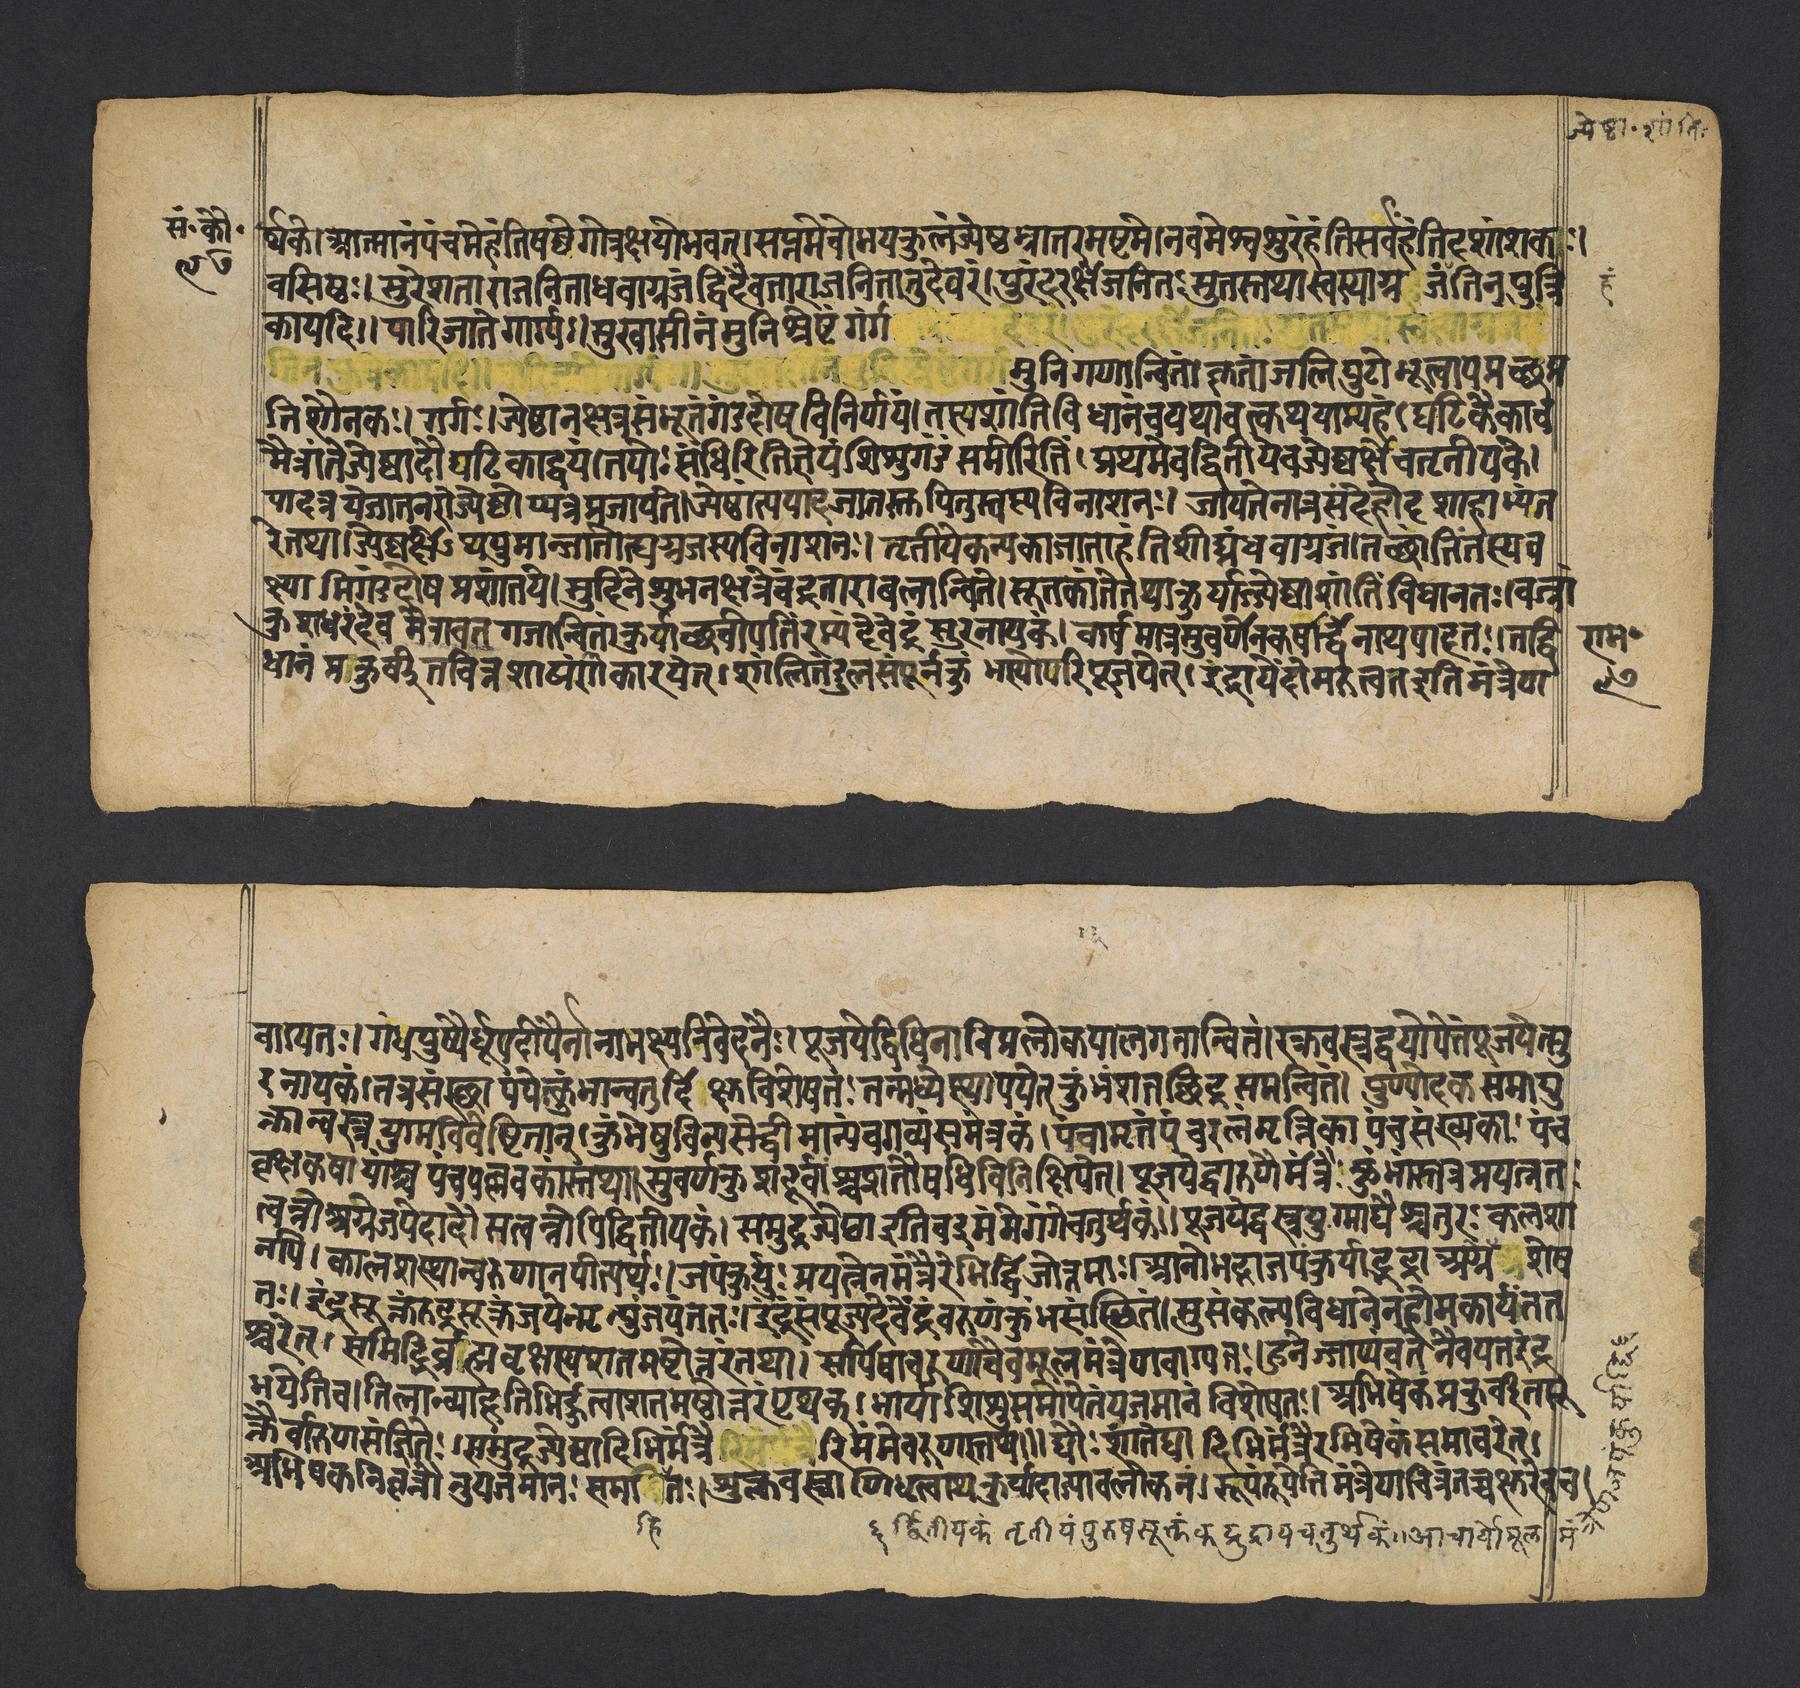 ज्येष्ठा॰शांति॰
सं॰कौ॰
९७
र्थके।आत्मानंपंचमेहंतिषष्ठेगोत्रक्षयोभवेत्।सप्तमेचोभयकुलंज्येष्ठभ्रातरमष्टमे।नवमेश्वशुरंहंतिसर्वंहंतिदशांशकः।
वसिष्ठः।सुरेशताराजनिताधवाग्रजंद्विदैवताराजनितातुदेवरं।पुरंदरर्क्षेजनितःसुतस्तथास्वस्याग्रजंतिनपुत्रि
हं
कायदि।।पारिजातेगार्ग्यः।।सुखासीनंमुनिश्रेष्टंगर्गं
मुनिगणान्वितं।कृतांजलिपुटोभूत्वापप्रच्छप्र
तिशौनकः।गर्गः।ज्येष्ठानक्षत्रसंभूतंगंडदोषविनिर्णयं।तस्यशांतिविधानंचयथावत्कथयाम्यहं।घटिकैकाचं
मैत्रांतेज्येष्ठादौघटिकाद्वयं।तयोःसंधिरितिज्ञेयंशिशुगंडंसमीरितिं।प्रथमेचद्वितीयेवज्येष्ठर्क्षेचतृतीयके।
पादत्रयेजातनरोज्येष्ठोप्यत्रप्रजायते।ज्येष्ठांत्यपादजातस्तुपितुस्वस्यविनाशनः।जायतेनात्रसंदेहोदशाहाभ्यंत
रेतथा।ज्येष्ठर्क्षेषुपुमान्जातोत्यग्रजस्यविनाशनः।तृतीयेकन्यकाजाताहंतिशीघ्रंधवाग्रजं।तच्छांतिंतस्यव
क्ष्यामिगंडदोषप्रशांतये।सुदिनेशुभनक्षत्रेचंद्रताराबलान्विते।सूतकांतेतथाकुर्याज्ज्येष्ठाशांतिंविधानतः।वज्रां
कुशधरंदेवमैरावतगजान्वितं।कुर्याच्छचीपतिंरम्यंदेवेंद्रंसुरनायकं।कर्षमात्रसुवर्णेनकर्षार्द्धेनाथपादतः।तद्वि
राम॰
धानंप्रकुर्वीतवित्तशाठ्यंनकारयेत्।शालितंडुलसंपूर्नकुंभस्योपरिपूजयेत्।इंद्रायेंदोमरुत्वतइतिमंत्रेणा
९७
वाग्यतः।गंधपुष्पैर्धूपदीपैर्नानाभक्ष्यनिवेदनैः।पूजयेद्विधिनाविप्रलोकपालगनान्वितं।रक्तवस्त्रद्वयोपेतंपूजयेत्सु
रनायकं।तत्रसंस्थापयेत्कुंभान्चतुर्दिक्षुविशेषतः।तन्मध्येस्थापयेत्कुंभंशतछिद्रसमन्वितं।पुण्योदकसमायु
क्तान्वस्त्रयुग्मविवेष्टितान्।कुंभेषुविन्यसेद्धीमान्पंचगव्यंसमंत्रकं।पंचामृतंपंचरत्नंमृत्तिकापंचसंख्यकाःपंच
वृक्षकषायांश्चपंचपल्लवकांस्तथा।सुवर्णकुशदूर्वांश्चशतौषधिविनिक्षिपेत्।पूजयेद्वारुणैर्मंत्रैःकुंभांस्तत्रप्रयत्नतः
त्वन्नोअग्नेजपेदादौसत्वन्नोपिद्वितीयकं।समुद्रज्येष्ठाइतिचइमंमेगंगेचतुर्थकं।।पूजयेद्वस्त्रयुग्माद्यैश्चतुरःकलशा
नपि।कालशस्थान्वरुणानपीत्यर्थः।जपंकुर्युःप्रयत्नेनमंत्रैरेभिर्द्विजोत्तमाः।आनोभद्राजपंकुर्याद्भद्राअग्नेर्विशेष
तः।इंद्रसूक्तंरुद्रसूक्तंजपेन्मृत्युंजयंततः।इंद्रंसंपूज्यदेवेंद्रंवरुणंकुंभसंस्थितं।सुसंकल्पविधानेनहोमकार्यंतत
श्चरेत्।समिद्भिर्ब्राह्मवृक्षस्यशतमष्टोत्तरंतथा।सर्पिषाचरुणाचैवमूलमंत्रेणवाग्यतः।हुनेज्जाप्यंचतेनैवयतइंद्र
भयेतिच।तिलान्व्याहृतिभिर्हुत्वाशतमष्ठोत्तरंपृथक्।भार्याशिशुसमोपेतंयजमानंविशेषतः।अभिषेकंप्रकुर्वीतसू
क्तैर्वारुणसंज्ञितेः।समुद्रज्येष्ठादिभिर्मंत्रैरिमंमेवरुणात्तथ।।द्यौःशांतिद्यादिभिर्मंत्रैरभिषेकंसमाचरेत्।
अभिषेकनिवृत्तौतुयजमानःसमाहितः।शुल्कवस्त्राणिधृत्वाथकुर्यादाज्यावलोकनं।रूपंरूपेतिमंत्रेणचित्रंतच्चक्षुरेवच।
हि
६र्द्वितीयकं तृतीयंपुरुषसूक्तंकद्रुद्रायचतुर्थकं।।आचार्योमूलमं